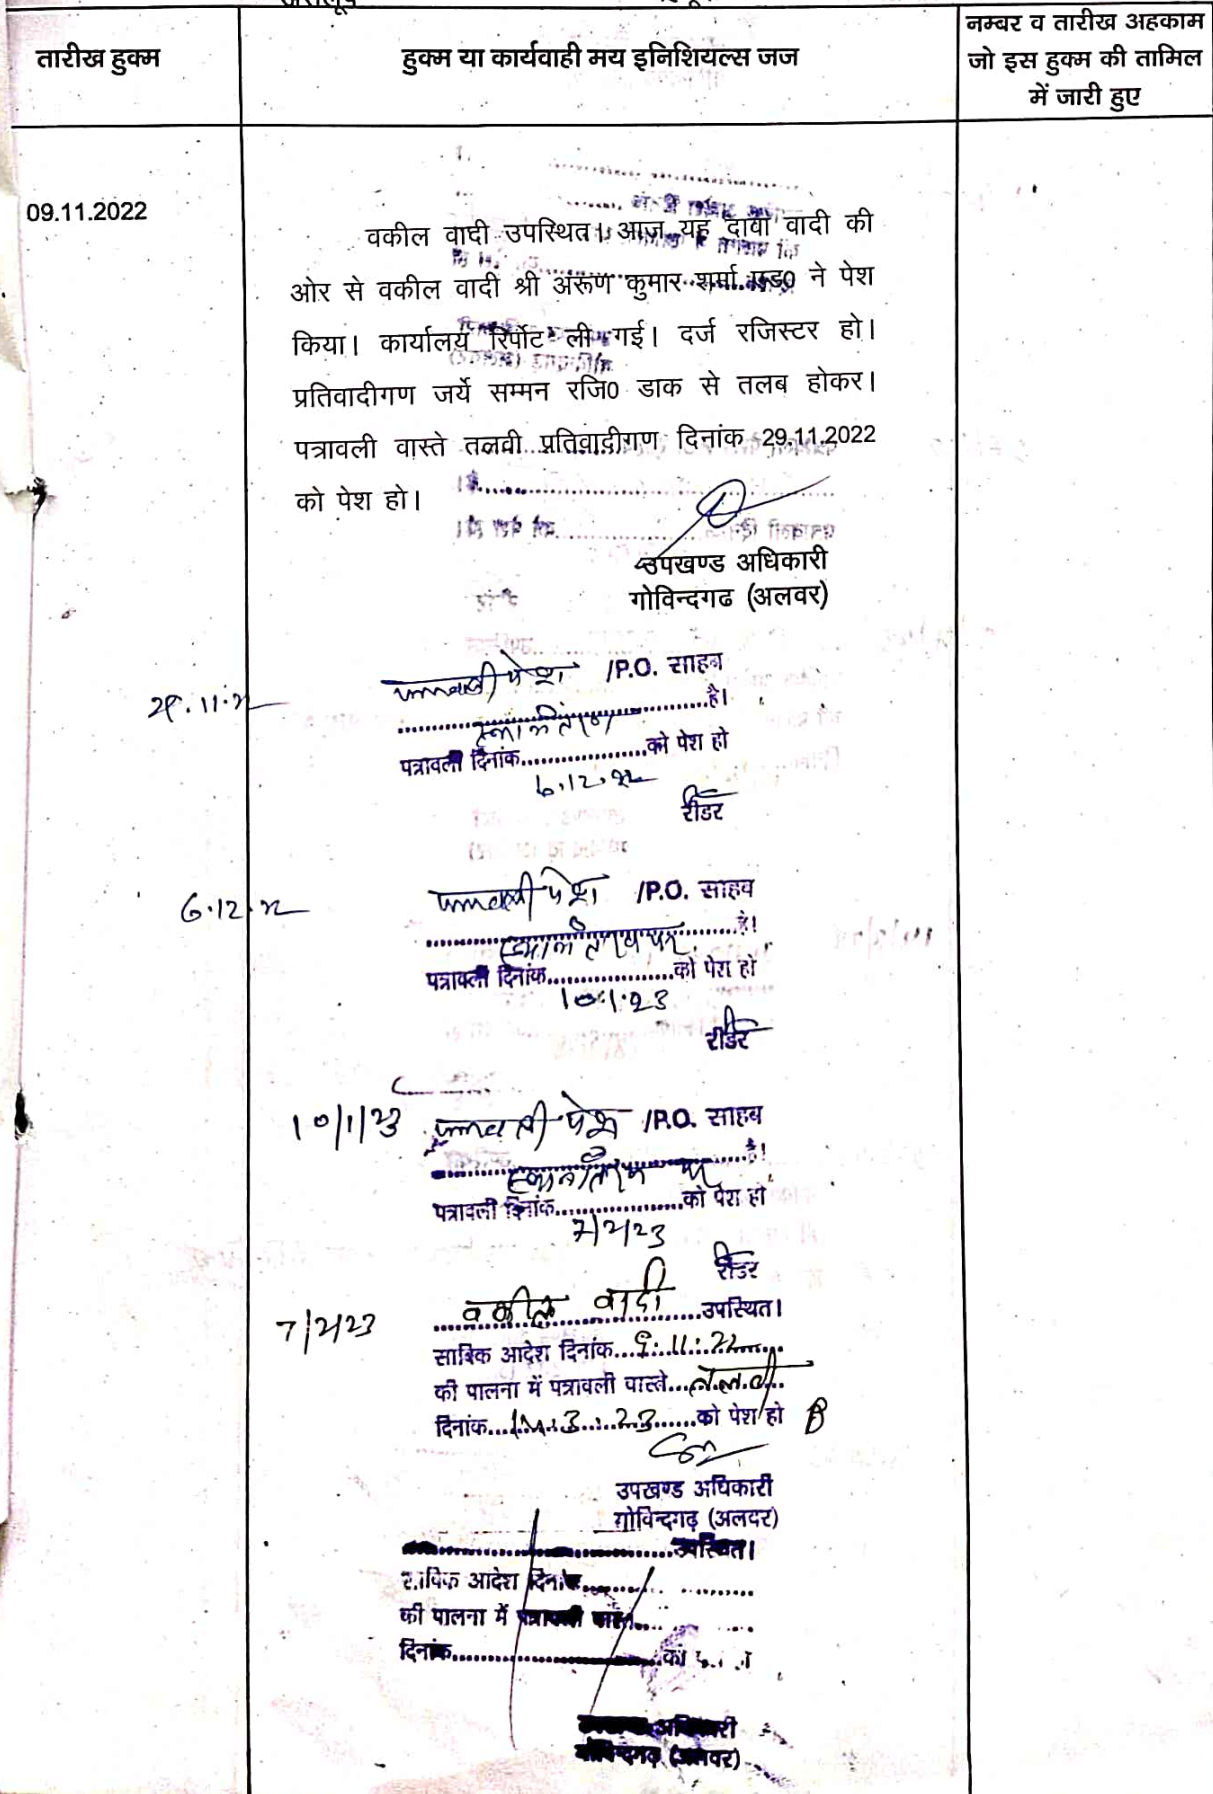 तारीख हुक्म
हुक्म या कार्यवाही मय इनिशियल्स जज
नम्बर व तारीख अहकाम
जो इस हुक्म की तामिल
में जारी हुए
09.11.2022
वकील वादी उपस्थित। आज यह दावा वादी की
ओर से वकील वादी श्री अरूण कुमार शर्मा एड0 ने पेश
किया। कार्यालय रिर्पोट ली गई। दर्ज रजिस्टर हो।
प्रतिवादीगण जर्ये सम्मन रजि0 डाक से तलब होकर।
पत्रावली वास्ते तलवी प्रतिवादीगण दिनांक 29.11.2022
को पेश हो।
उपखण्ड अधिकारी
गोविन्दगढ (अलवर)
29.11.22
पत्रावली पेश /P.O. साहब
है।
पत्रावली दिनांक....................को पेश हो
6.12.22
रीडर
6.12.22
पत्रावली पेश /P.O. साहब
है।
पत्रावली दिनांक....................को पेश हो
10.1.23
रीडर
10/1/23
पत्रावली पेश /P.O. साहब
है।
पत्रावली दिनांक....................को पेश हो
7/2/23
रीडर
7/2/23
वकील वादी उपस्थित।
साबिक आदेश दिनांक 9.11.22
की पालना में पत्रावली वास्ते तलवी
दिनांक 14.3.23 को पेश हो
उपखण्ड अधिकारी
गोविन्दगढ़ (अलवर)
उपस्थित।
साबिक आदेश दिनांक
की पालना में पत्रावली वास्ते
दिनांक
अधिकारी
गोविन्दगढ़ (अलवर)